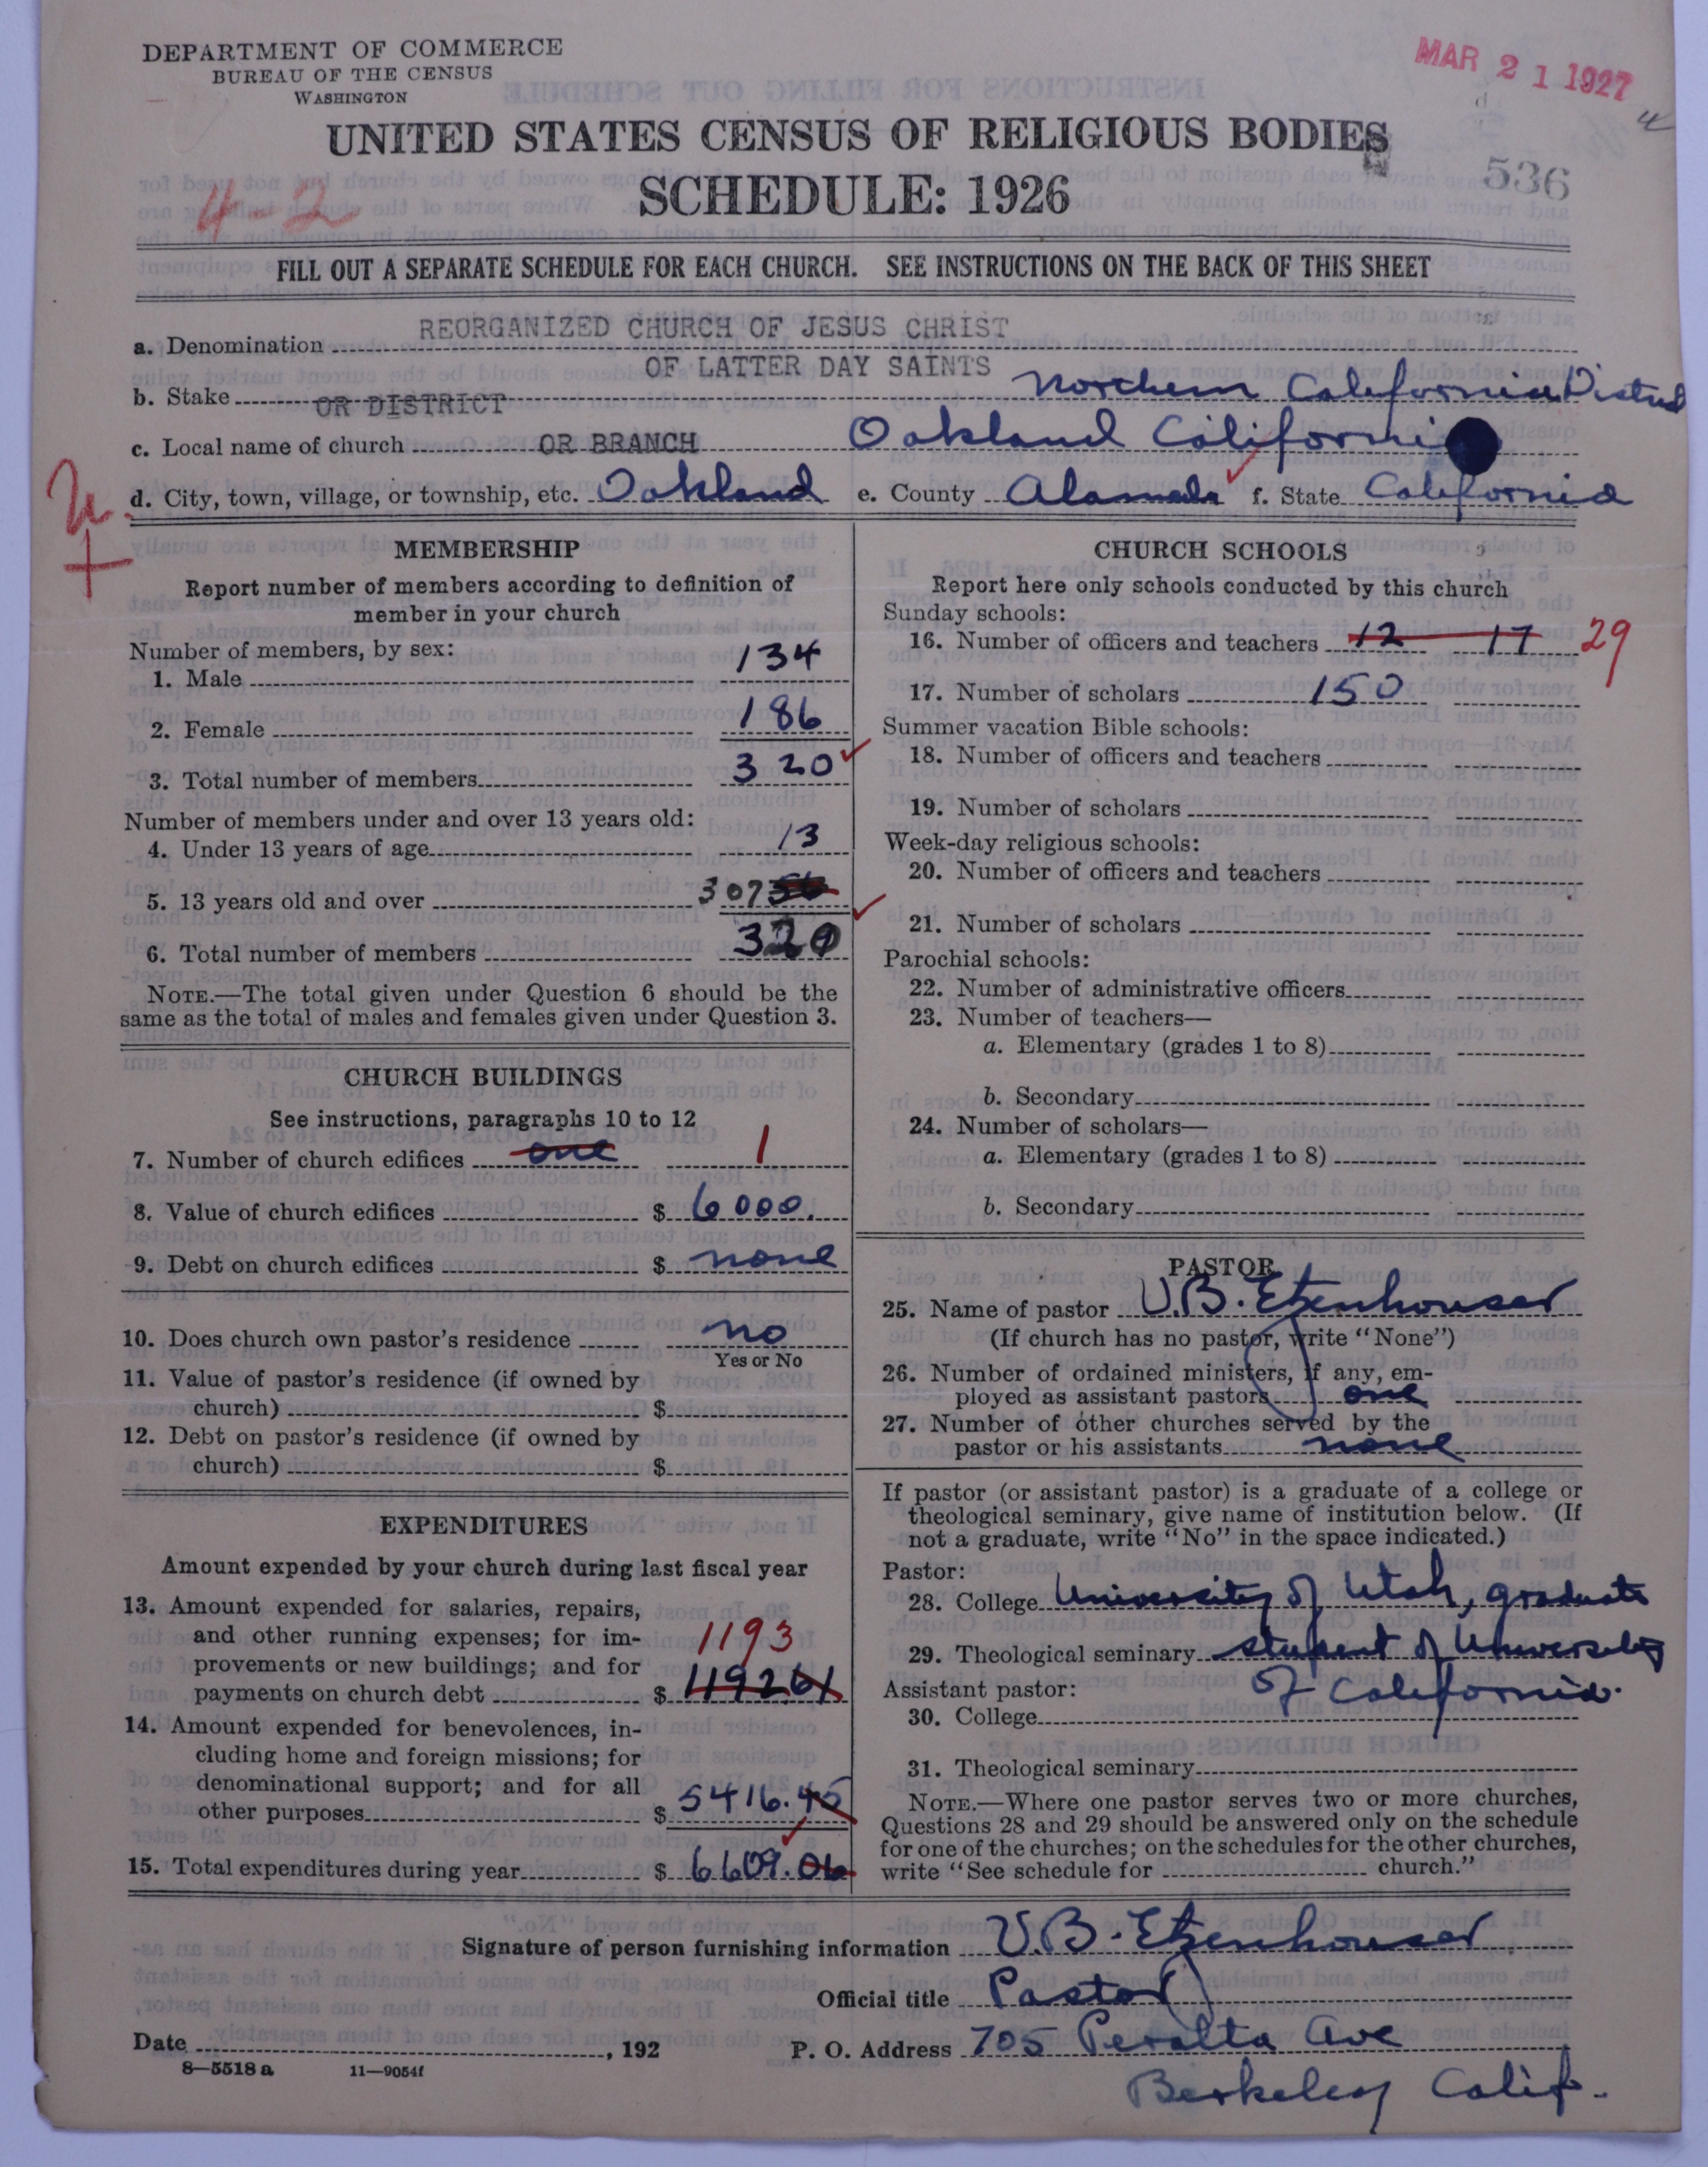 DEPARTMENT OF COMMERCE
BUREAU OF THE CENSUS
WASHINGTON
MAR 21 1927
4
UNITED STATES CENSUS OF RELIGIOUS BODIES
4-2
SCHEDULE: 1926
536
FILL OUT A SEPARATE SCHEDULE FOR EACH CHURCH. SEE INSTRUCTIONS ON THE BACK OF THIS SHEET
a. Denomination REORGANIZED CHURCH OF JESUS CHRIST
OF LATTER DAY SAINTS
b. Stake OR DISTRICT Northern California District
c. Local name of church OR BRANCH Oakland California
d. City, town, village, or township, etc. Oakland e. County Alameda f. State California
MEMBERSHIP
Report number of members according to definition of
member in your church
Number of members, by sex:
1. Male 134
2. Female 186
3. Total number of members 320
Number of members under and over 13 years old:
4. Under 13 years of age 13
5. 13 years old and over 307
6. Total number of members 320
NOTE.—The total given under Question 6 should be the
same as the total of males and females given under Question 3.
CHURCH BUILDINGS
See instructions, paragraphs 10 to 12
7. Number of church edifices one 1
8. Value of church edifices $ 6000.
9. Debt on church edifices $ none
10. Does church own pastor's residence no
Yes or No
11. Value of pastor's residence (if owned by
church) $
12. Debt on pastor's residence (if owned by
church) $
EXPENDITURES
Amount expended by your church during last fiscal year
13. Amount expended for salaries, repairs,
and other running expenses; for im-
provements or new buildings; and for 1193
payments on church debt $ 119261
14. Amount expended for benevolences, in-
cluding home and foreign missions; for
denominational support; and for all
other purposes $ 5416.45
15. Total expenditures during year $ 6609.06
CHURCH SCHOOLS
Report here only schools conducted by this church
Sunday schools:
16. Number of officers and teachers 12 17 29
17. Number of scholars 150
Summer vacation Bible schools:
18. Number of officers and teachers
19. Number of scholars
Week-day religious schools:
20. Number of officers and teachers
21. Number of scholars
Parochial schools:
22. Number of administrative officers
23. Number of teachers—
a. Elementary (grades 1 to 8)
b. Secondary
24. Number of scholars—
a. Elementary (grades 1 to 8)
b. Secondary
PASTOR
25. Name of pastor V.B. Etzenhouser
(If church has no pastor, write "None")
26. Number of ordained ministers, if any, em-
ployed as assistant pastors one
27. Number of other churches served by the
pastor or his assistants none
If pastor (or assistant pastor) is a graduate of a college or
theological seminary, give name of institution below. (If
not a graduate, write "No" in the space indicated.)
Pastor:
28. College University of Utah, graduate
29. Theological seminary student of University
Assistant pastor: of California.
30. College
31. Theological seminary
NOTE.—Where one pastor serves two or more churches,
Questions 28 and 29 should be answered only on the schedule
for one of the churches; on the schedules for the other churches,
write "See schedule for church."
Signature of person furnishing information V.B. Etzenhouser
Official title Pastor
Date , 192 P. O. Address 705 Peralta Ave
8—5518 a 11—9054f
Berkeley Calif.